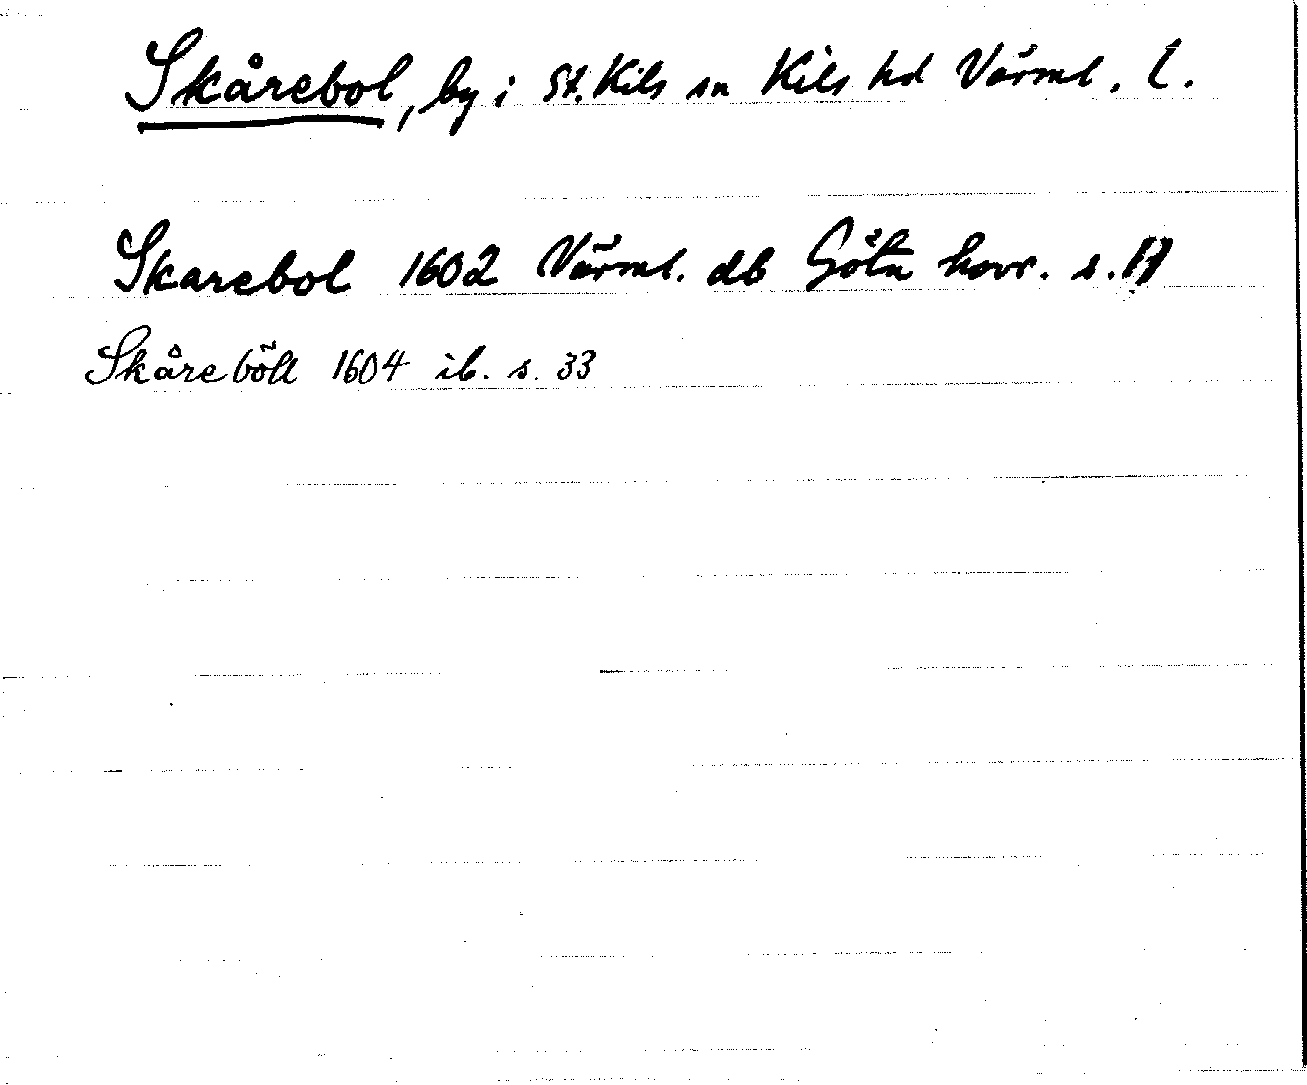 Skårebol, by i St. Kils sn Kils hd Värml. l.
Skarebol 1602 Värml. db Göta hovr. s.
Skåreböll 1604 ib. s. 33